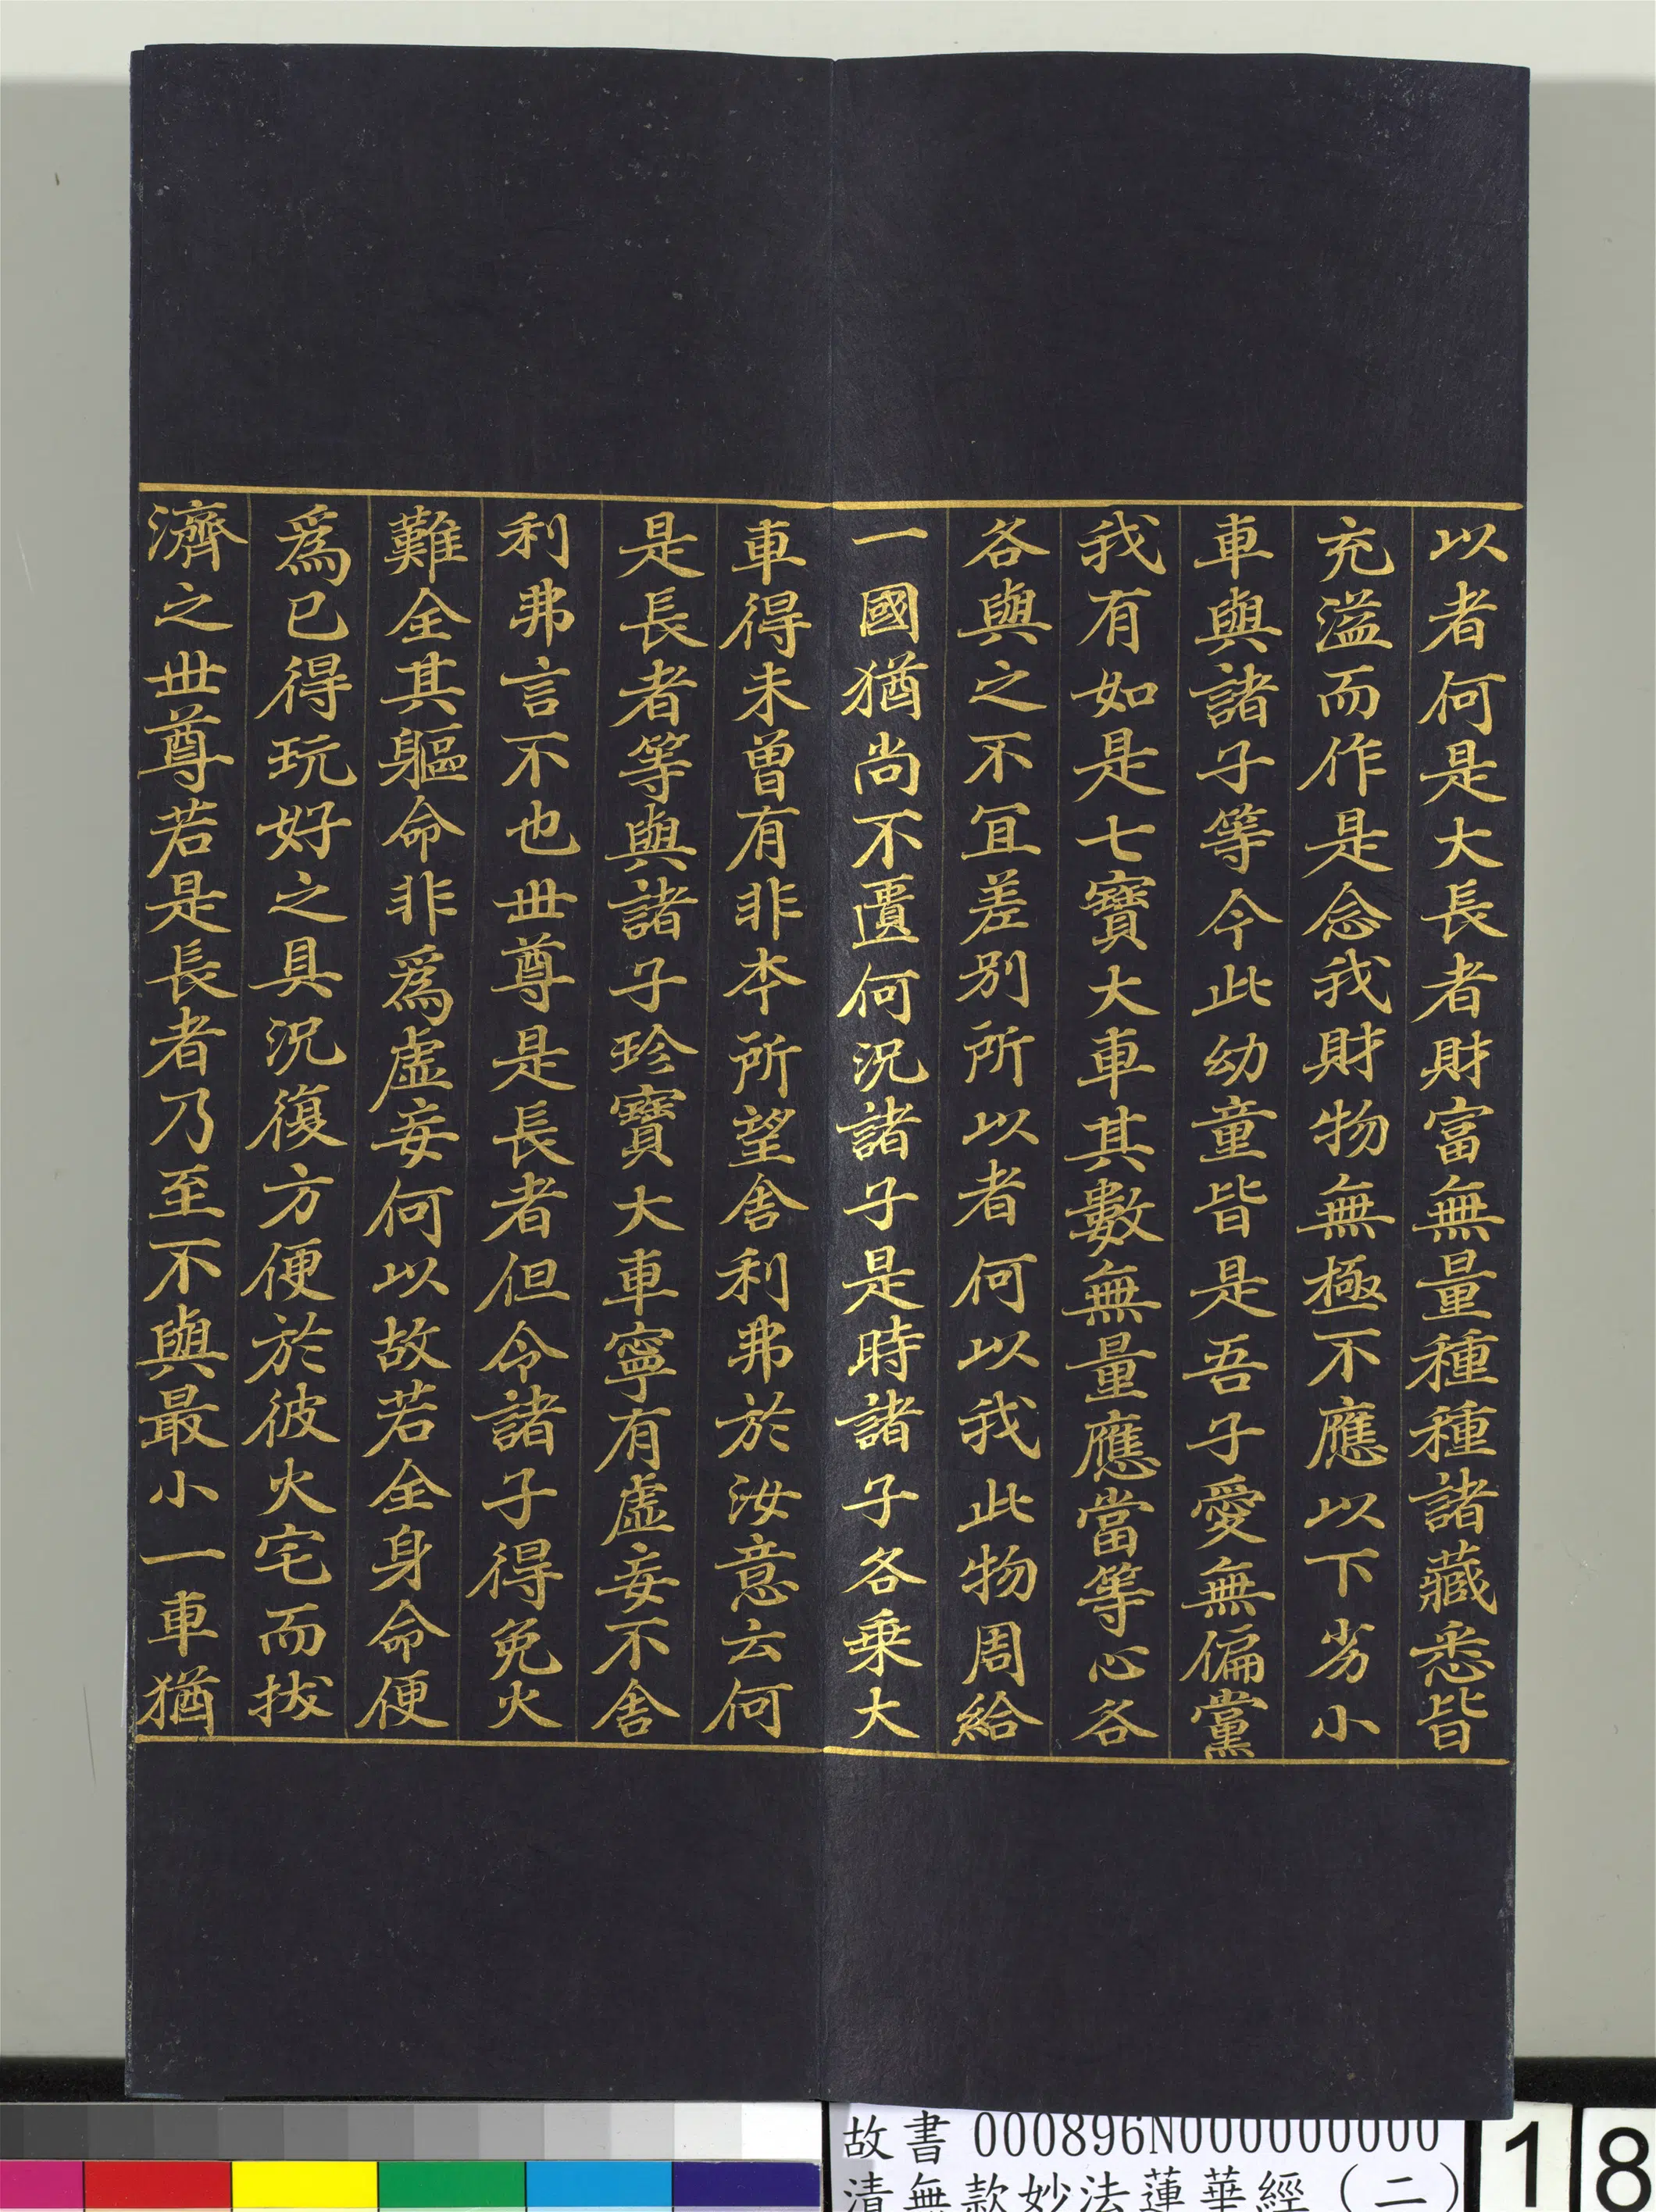 以者何是大長者財富無量種種諸藏悉皆
充溢而作是念我財物無極不應以下劣小
車與諸子等今此幼童皆是吾子愛無偏黨
我有如是七寶大車其數無量應當等心各
各與之不宜差別所以者何以我此物周給
一國猶尚不匱何況諸子是時諸子各乘大
車得未曾有非本所望舍利弗於汝意云何
是長者等與諸子珍寶大車寧有虛妄不舍
利弗言不也世尊是長者但令諸子得免火
難全其軀命非為虛妄何以故若全身命便
為已得玩好之具況復方便於彼火宅而拔
濟之世尊若是長者乃至不與最小一車猶
故書 000896N000000000
清無款妙法蓮華經(二)
18